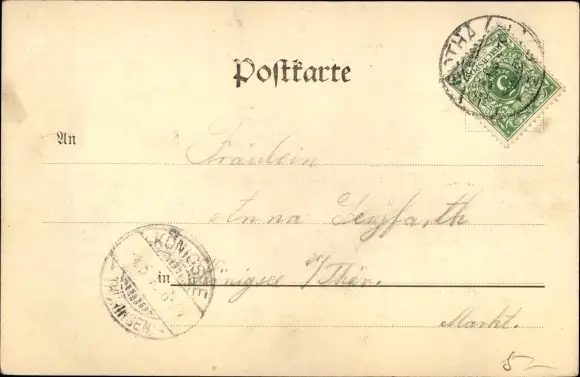 GOTHA
Postkarte
An
Fräulein
Anna Seyfarth
in Königsee i/Thür.
Markt.
KÖNIGSEE
THÜRINGEN
5